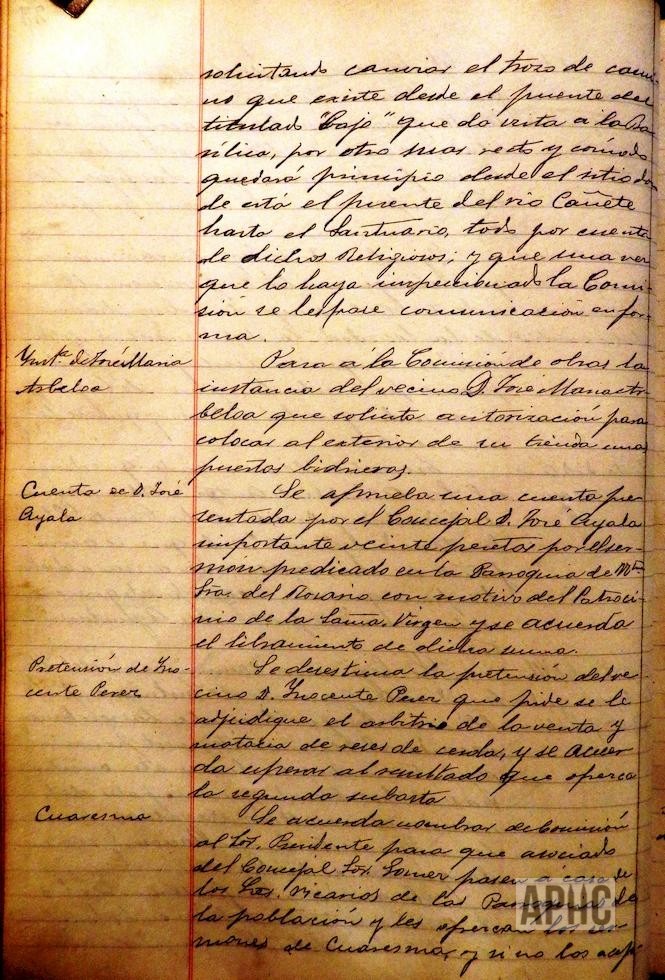 solicitando canviar el trozo de cami-
no que existe desde el puente del
titulado "Cojo" que da vista a la Ba-
sílica, por otro mas recto y comodo
quedará principio desde el sitio don
de está el puente del río Cañete
hasta el Santuario, todo por cuenta
de dichos Religiosos; y que una vez
que lo haya inspeccionado la Comi-
sión se les pase comunicación en for-
ma.
Ynstª. de José Maria
Arbeloa
Pasa á la Comisión de obras la
instancia del vecino D. José Maria Ar-
beloa que solicita autorización para
colocar al exterior de su tienda unas
puertas bidrieras.
Cuenta de D. José
Ayala
Se aprueba una cuenta pre-
sentada por el Concejal D. José Ayala
importante veinte pesetas por el ser-
mon predicado en la Parroquia de Ntra.
Sra. del Rosario con motivo del Patroci-
nio de la Sama. Virgen y se acuerda
el libramiento de dicha suma.
Pretensión de Yno-
cente Perez
Se desestima la pretensión del ve-
cino D. Ynocente Perez que pide se le
adjudique el arbitrio de la venta y
matacia de reses de cerda, y se acuer
da esperar al resultado que ofrezca
la segunda subasta
Cuaresma
Se acuerda nombrar de Comisión
al Sor. Presidente para que asociado
del Concejal Sor. Gomez pasen a casa de
los Sres. Vicarios de las Parroquias de
la población y les ofrezcan los ser-
mones de Cuaresma, y si no los acep
APHC